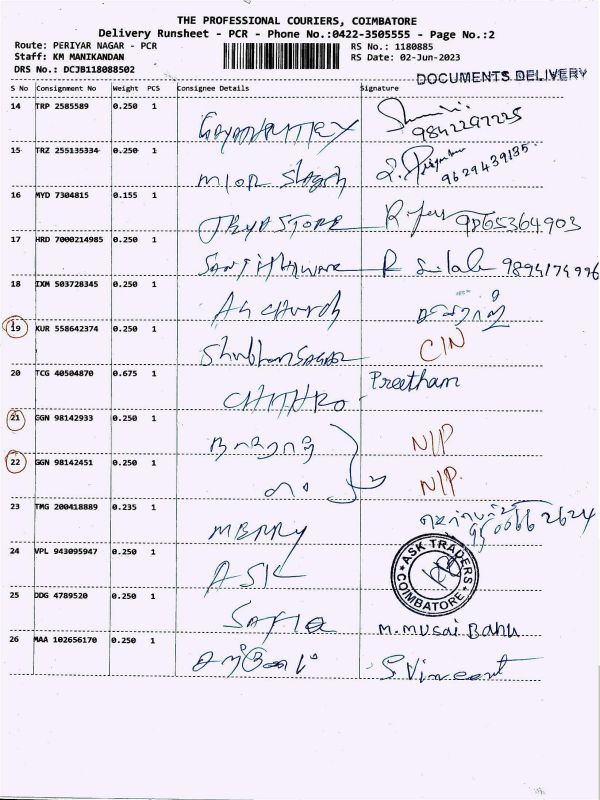 THE PROFESSIONAL COURIERS, COIMBATORE
Delivery Runsheet - PCR - Phone No.:0422-3505555 - Page No.:2
Route: PERIYAR NAGAR - PCR
RS No.: 1180885
Staff: KM MANIKANDAN
RS Date: 02-Jun-2023
DRS No.: DCJB118088502
DOCUMENTS DELIVERY
S No Consignment No Weight PCS Consignee Details Signature
14 TRP 2585589 0.250 1
9842297225
15 TRZ 255135334 0.250 1
9629439135
16 MYD 7304815 0.155 1
9865364903
17 HRD 7000214985 0.250 1
9894174996
18 IXM 503728345 0.250 1
AG church
19 KUR 558642374 0.250 1 CIN
20 TCG 40504870 0.675 1 Preetham
21 GGN 98142933 0.250 1 N/P
22 GGN 98142451 0.250 1 N/P
23 TMG 200418889 0.235 1
MERRY
24 VPL 943095947 0.250 1
ASK
ASK TRADERS
COIMBATORE
25 DDG 4789520 0.250 1
M. Musai Banu
26 MAA 102656170 0.250 1
S Vincent